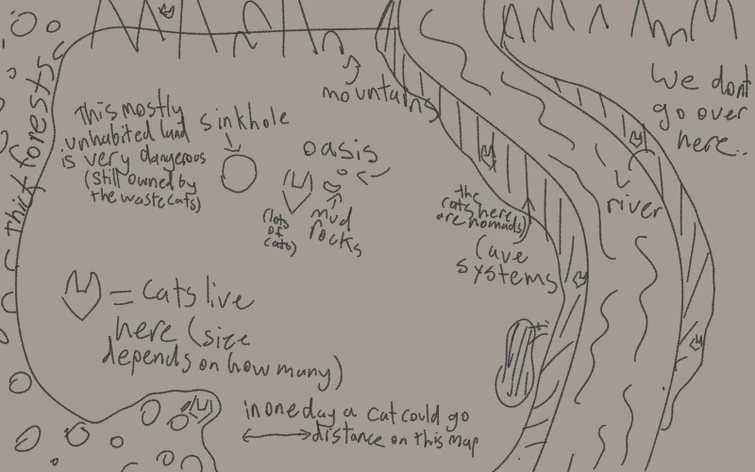 We dont
go over
here..
mountains
Thick forests
This mostly
unhabited land
is very dangerous
(still owned by
the wastecats)
sinkhole
oasis
(lots
of
cats)
mud
rocks
the
cats here
are nomads)
river
(ave
systems
= cats live
here (size
depends on how many)
in one day a cat could go
distance on this map